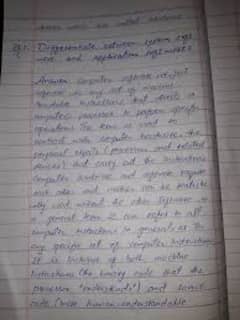 Q1. Differentiate between system soft
ware and application software?
Answer Computer software or just
software is any set of machine
readable instructions that directs a
computer's processor to perform specific
operations. The term is used to
contrast with computer hardware, the
physical objects (processor and related
devices) that carry out the instructions.
Computer hardware and software require
each other and neither can be realistic
ally used without the other. Software is
a general term. It can refer to all
computer instructions in general or to
any specific set of computer instructions.
It is inclusive of both machine
instructions (the binary code that the
processor "understands") and source
code (more human-understandable